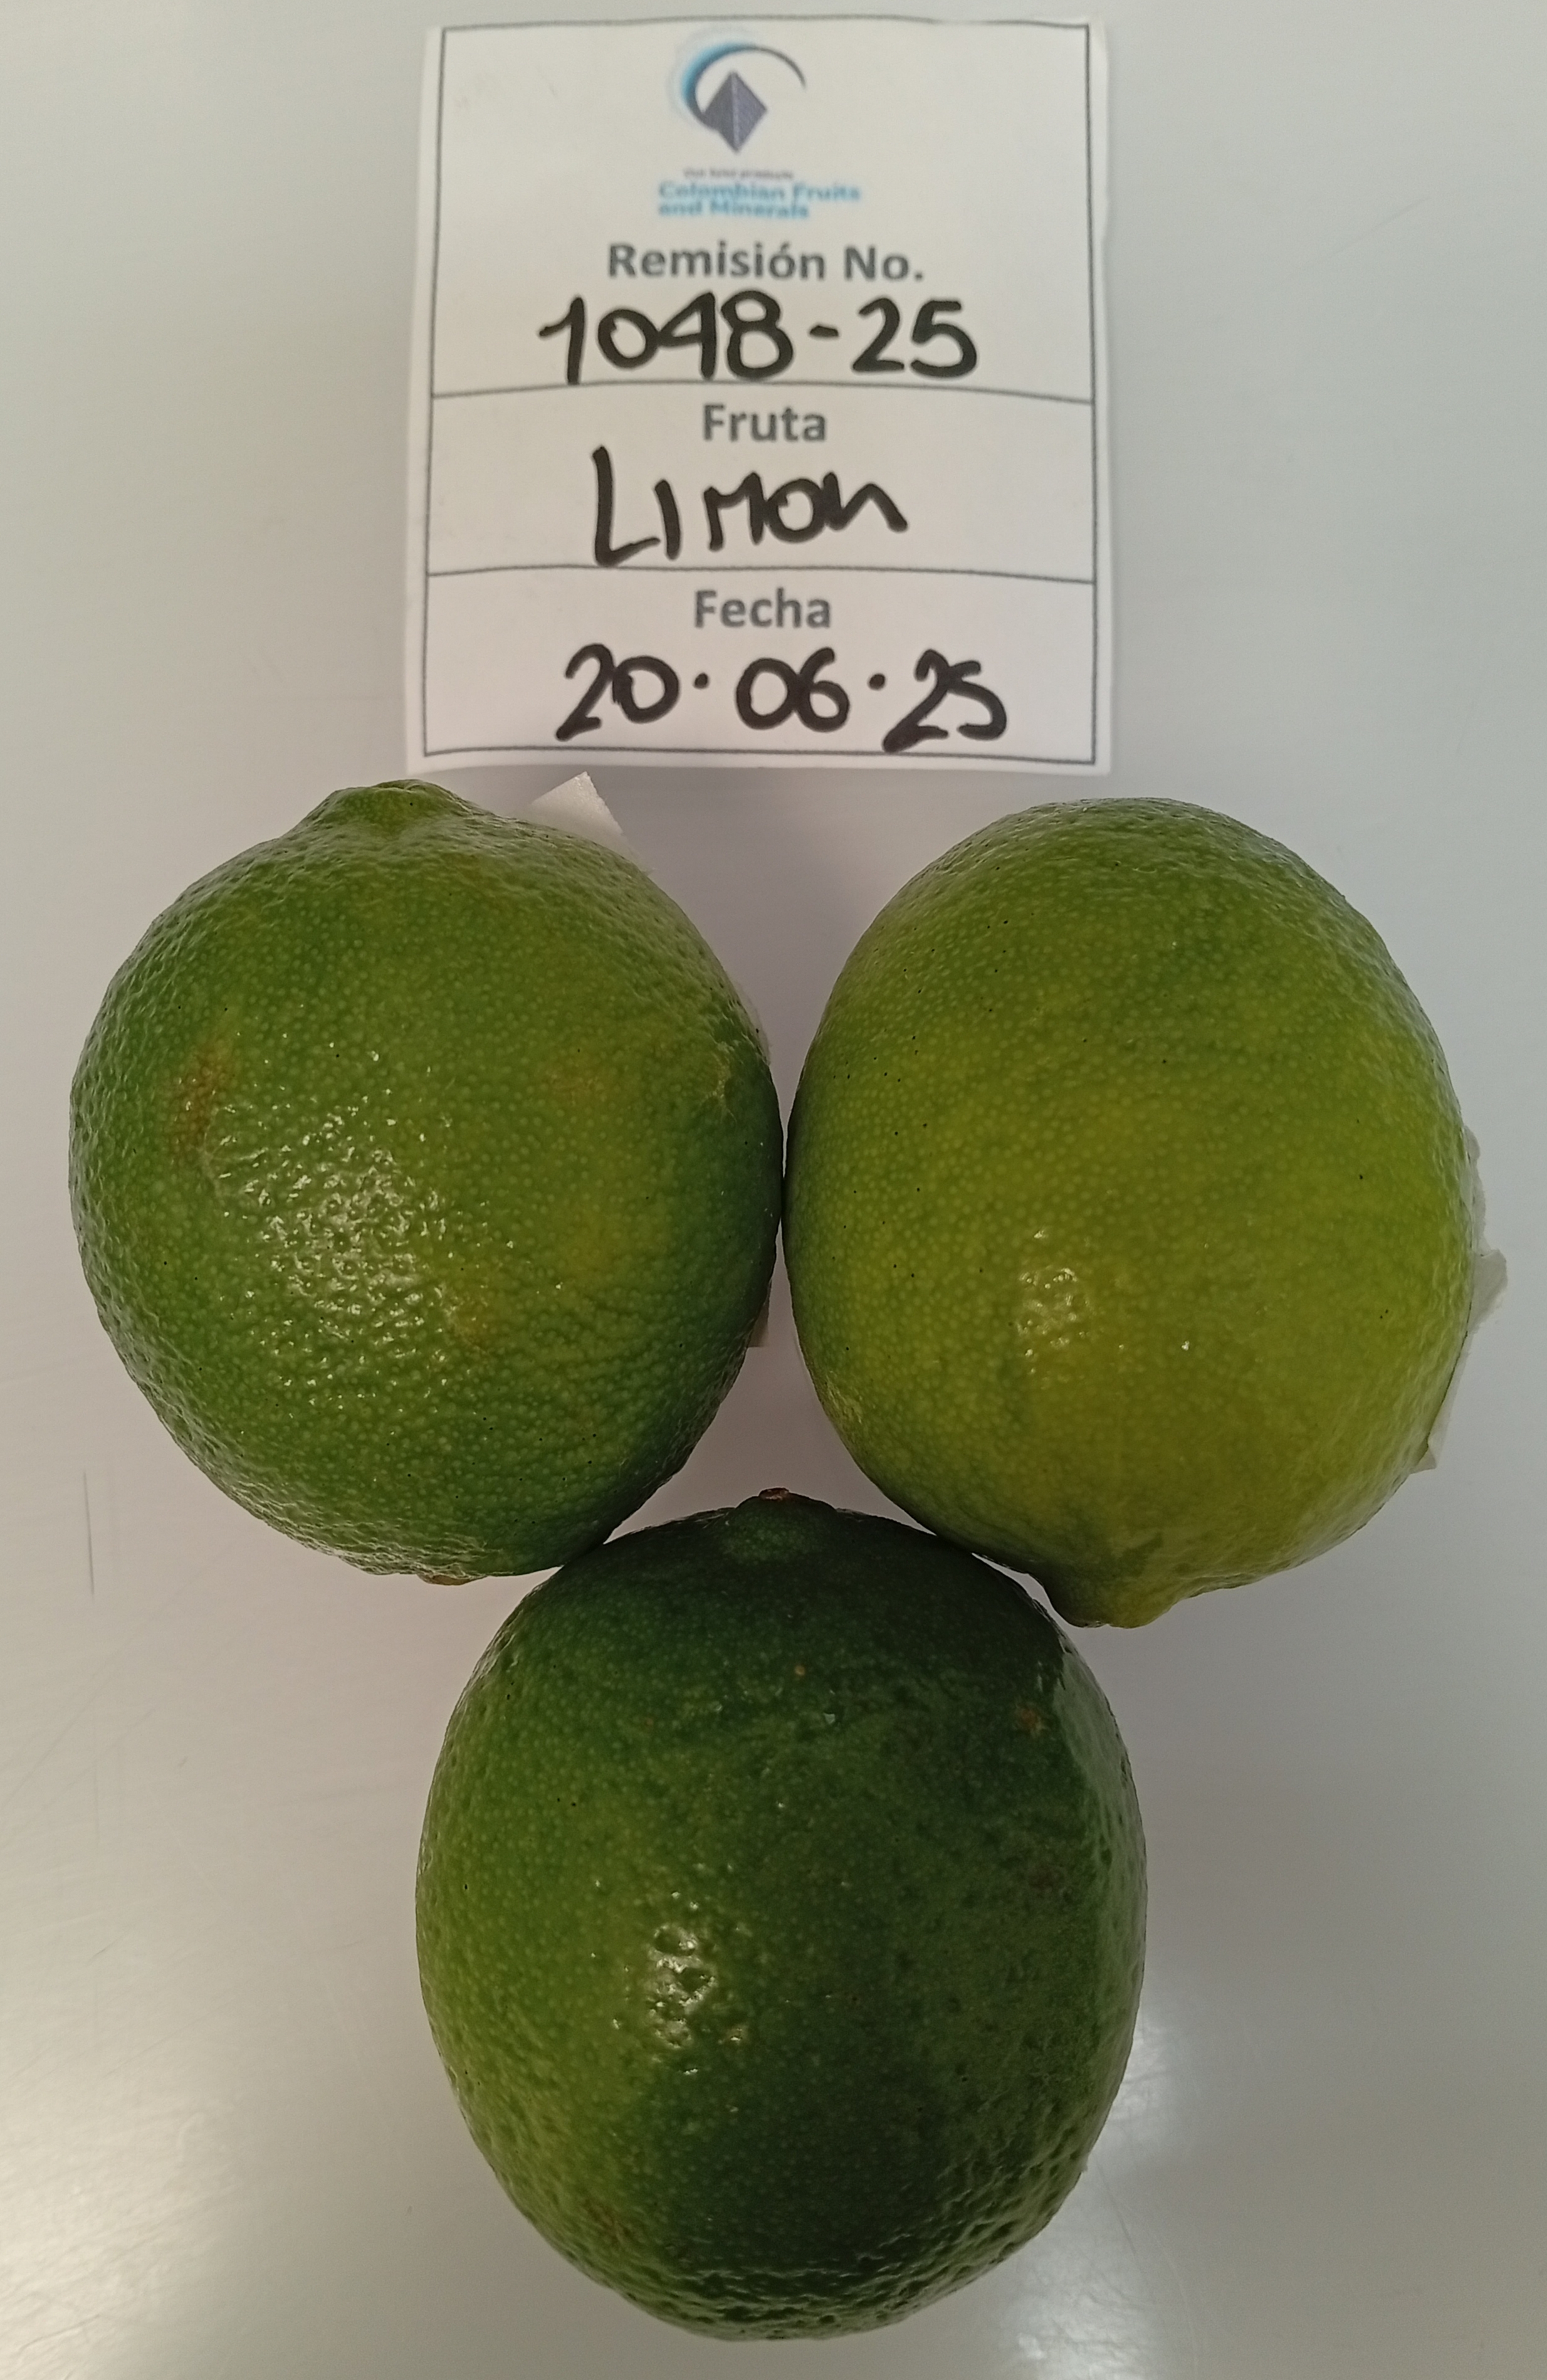 Colombian Fruits
and Minerals
Remisión No.
1048-25
Fruta
Limon
Fecha
20.06.25